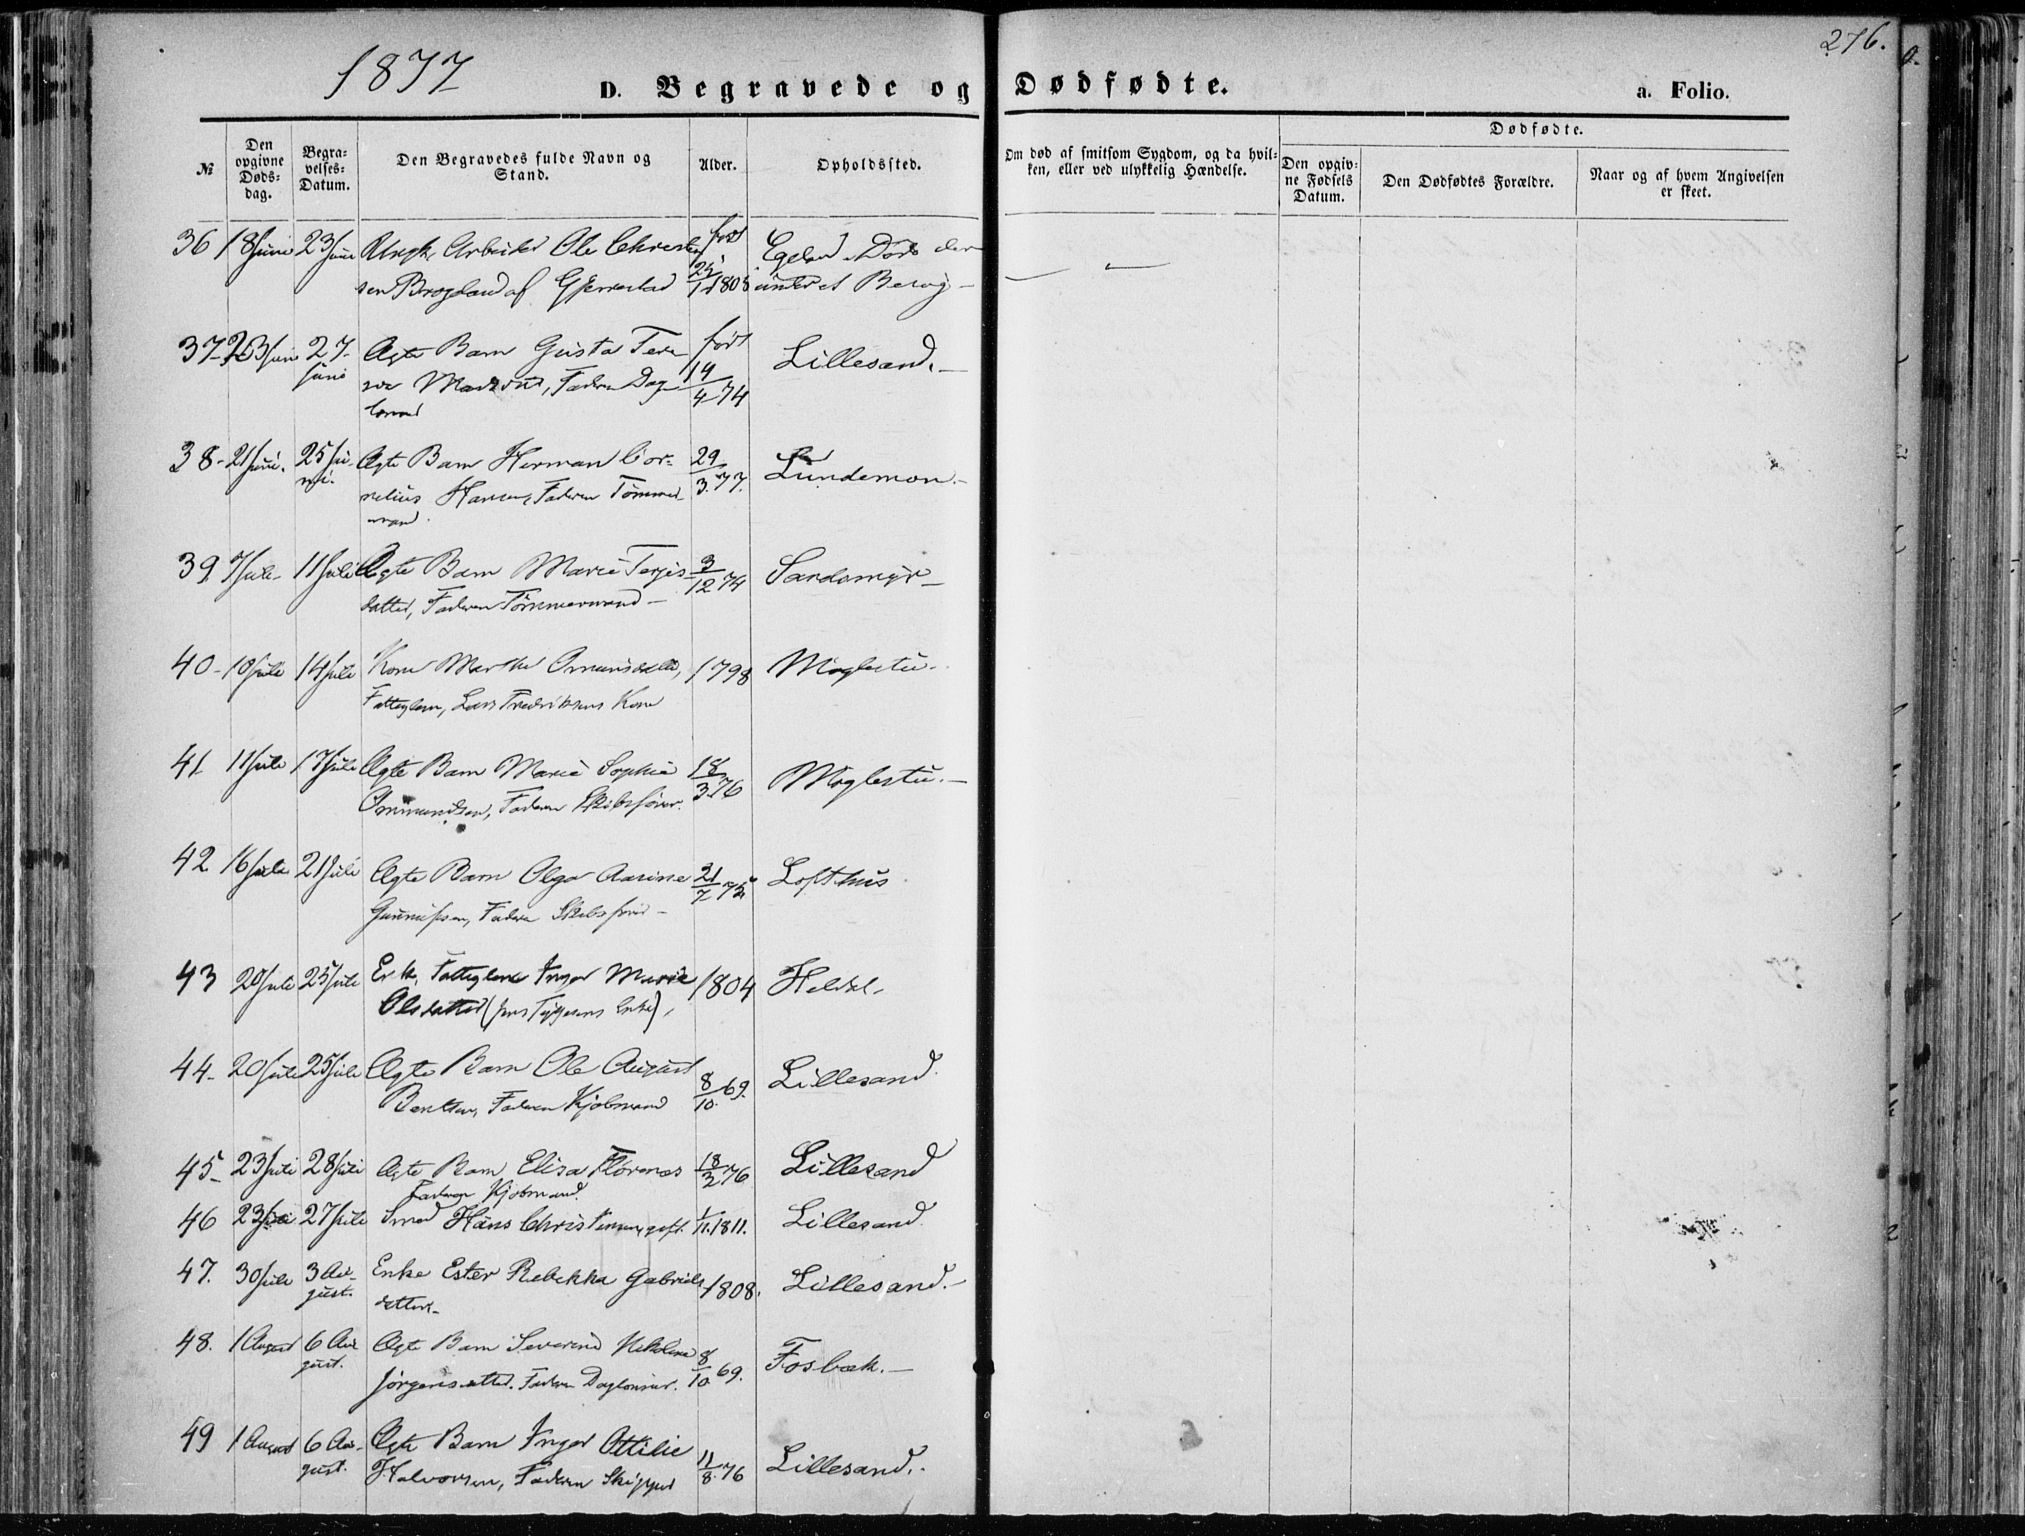 1877
276.
D. Begravede og Dødfødte.
a. Folio.
№
Den opgivne Døds-dag.
Begra-velses-Datum.
Den Begravedes fulde Navn og Stand.
Alder.
Opholdssted.
Om død af smitsom Sygdom, og da hvil-ken, eller ved ulykkelig Hændelse.
Dødfødte.
Den opgiv-ne Fødsels Datum.
Den Dødfødtes Forældre.
Naar og af hvem Angivelsen er skeet.
36 18 Juni 23 Juni Ungk. Arbeider Ole Christen født Egeland
sen Brogland af Gjerrestad 1808 under et Besøg –
37– 23 Juni 27– Ægte Barn Gusta født Lillesand.–
Juni Faderen Dag 14/4 74
lønner
38– 21 Juni. 25 Ju- Ægte Barn Herman Cor- 29/3. 77. Lundemon.–
ni. nelius Hansen, Faderen Tømmer
mand.
39. 7 Juli– 11 Juli Ægte Barn Marie Terjes 3/12 74 Sandsmyr–
datter, Faderen Tømmermand–
40– 10 Juli 14 Juli Kone Marthe 1798 Moglestu.
Fattiglem, Lars Fredriksens Kone
41 11 Juli 17 Juli Ægte Barn Marie Sophie 18/3 76 Moglestu.–
Ommundsen, Faderen Skibsfører.
42 16 Juli 21 Juli Ægte Barn Olga Aasine 21/7 75 Lofthus
Faderen Skibsfører–
43 20 Juli 25 Juli Enke, Fattiglem Inger Marie 1804 Heldal–
Olsdatter (Jens Tygesens Enke),
44– 20 Juli 25 Juli Ægte Barn Ole August 8/10. 69. Lillesand.
Bentsen, Faderen Kjøbmand
45– 23 Juli 28 Juli Ægte Barn Elisa Florenæs 18/3 76 Lillesand
Faderen Kjøbmand.
46 23 Juli 27 Juli Smed Hans Christensen, gift. 1/11. 1811. Lillesand.
47. 30 Juli 3 Au- Enke Ester Rebekka Gabriels 1808. Lillesand.–
gust. datter–
48. 1 August 6 Au Ægte Barn Severine Nikoline 8/10 69. Fosbæk.–
gust. Jørgensdatter. Faderen Daglønner.
49 1 August 6 Au- Ægte Barn Inger Ottilie 11/8 76 Lillesand.
gust. Halvorsen, Faderen Skipper